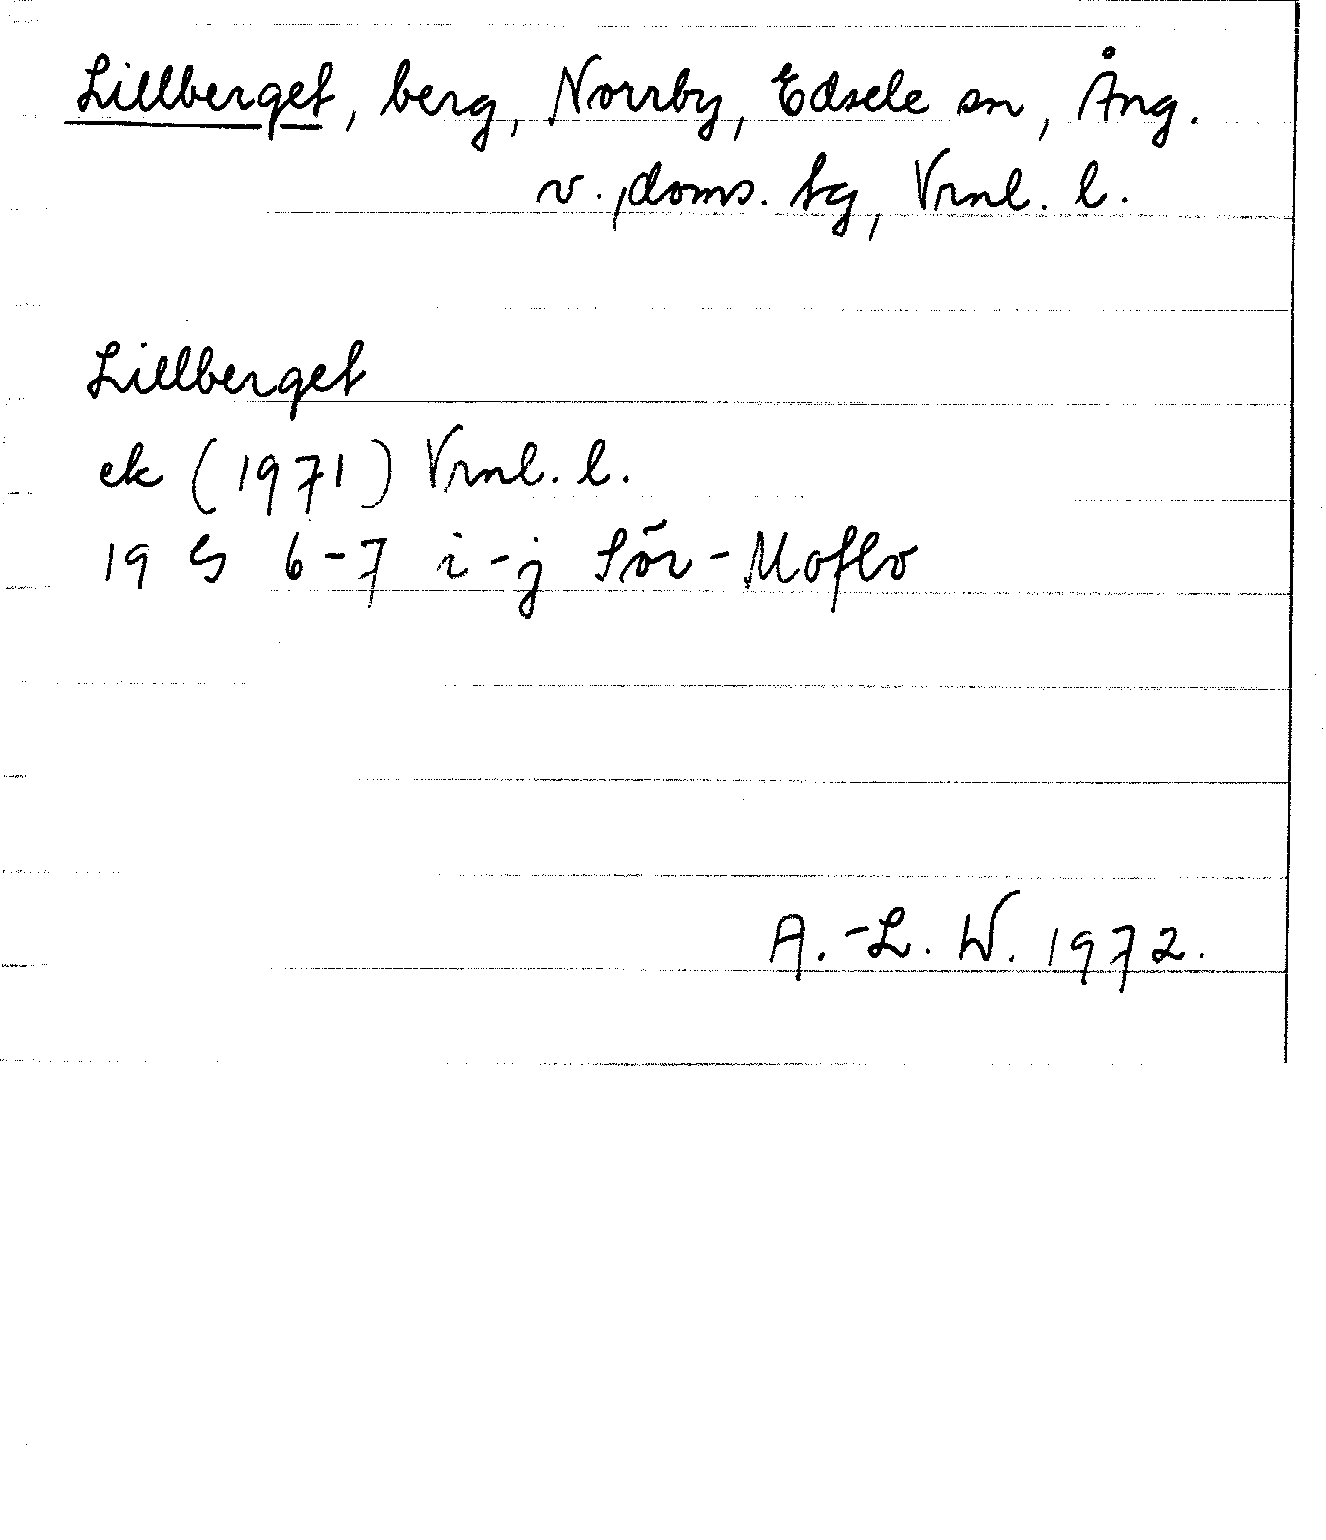 Lillberget, berg, Norrby, Edsele sn, Ång.
v. doms. tg, Vrnl. l.
Lillberget
ek (1971) Vrnl. l.
19 G 6-7 i-j Sör-Moflo
A.-L. W. 1972.